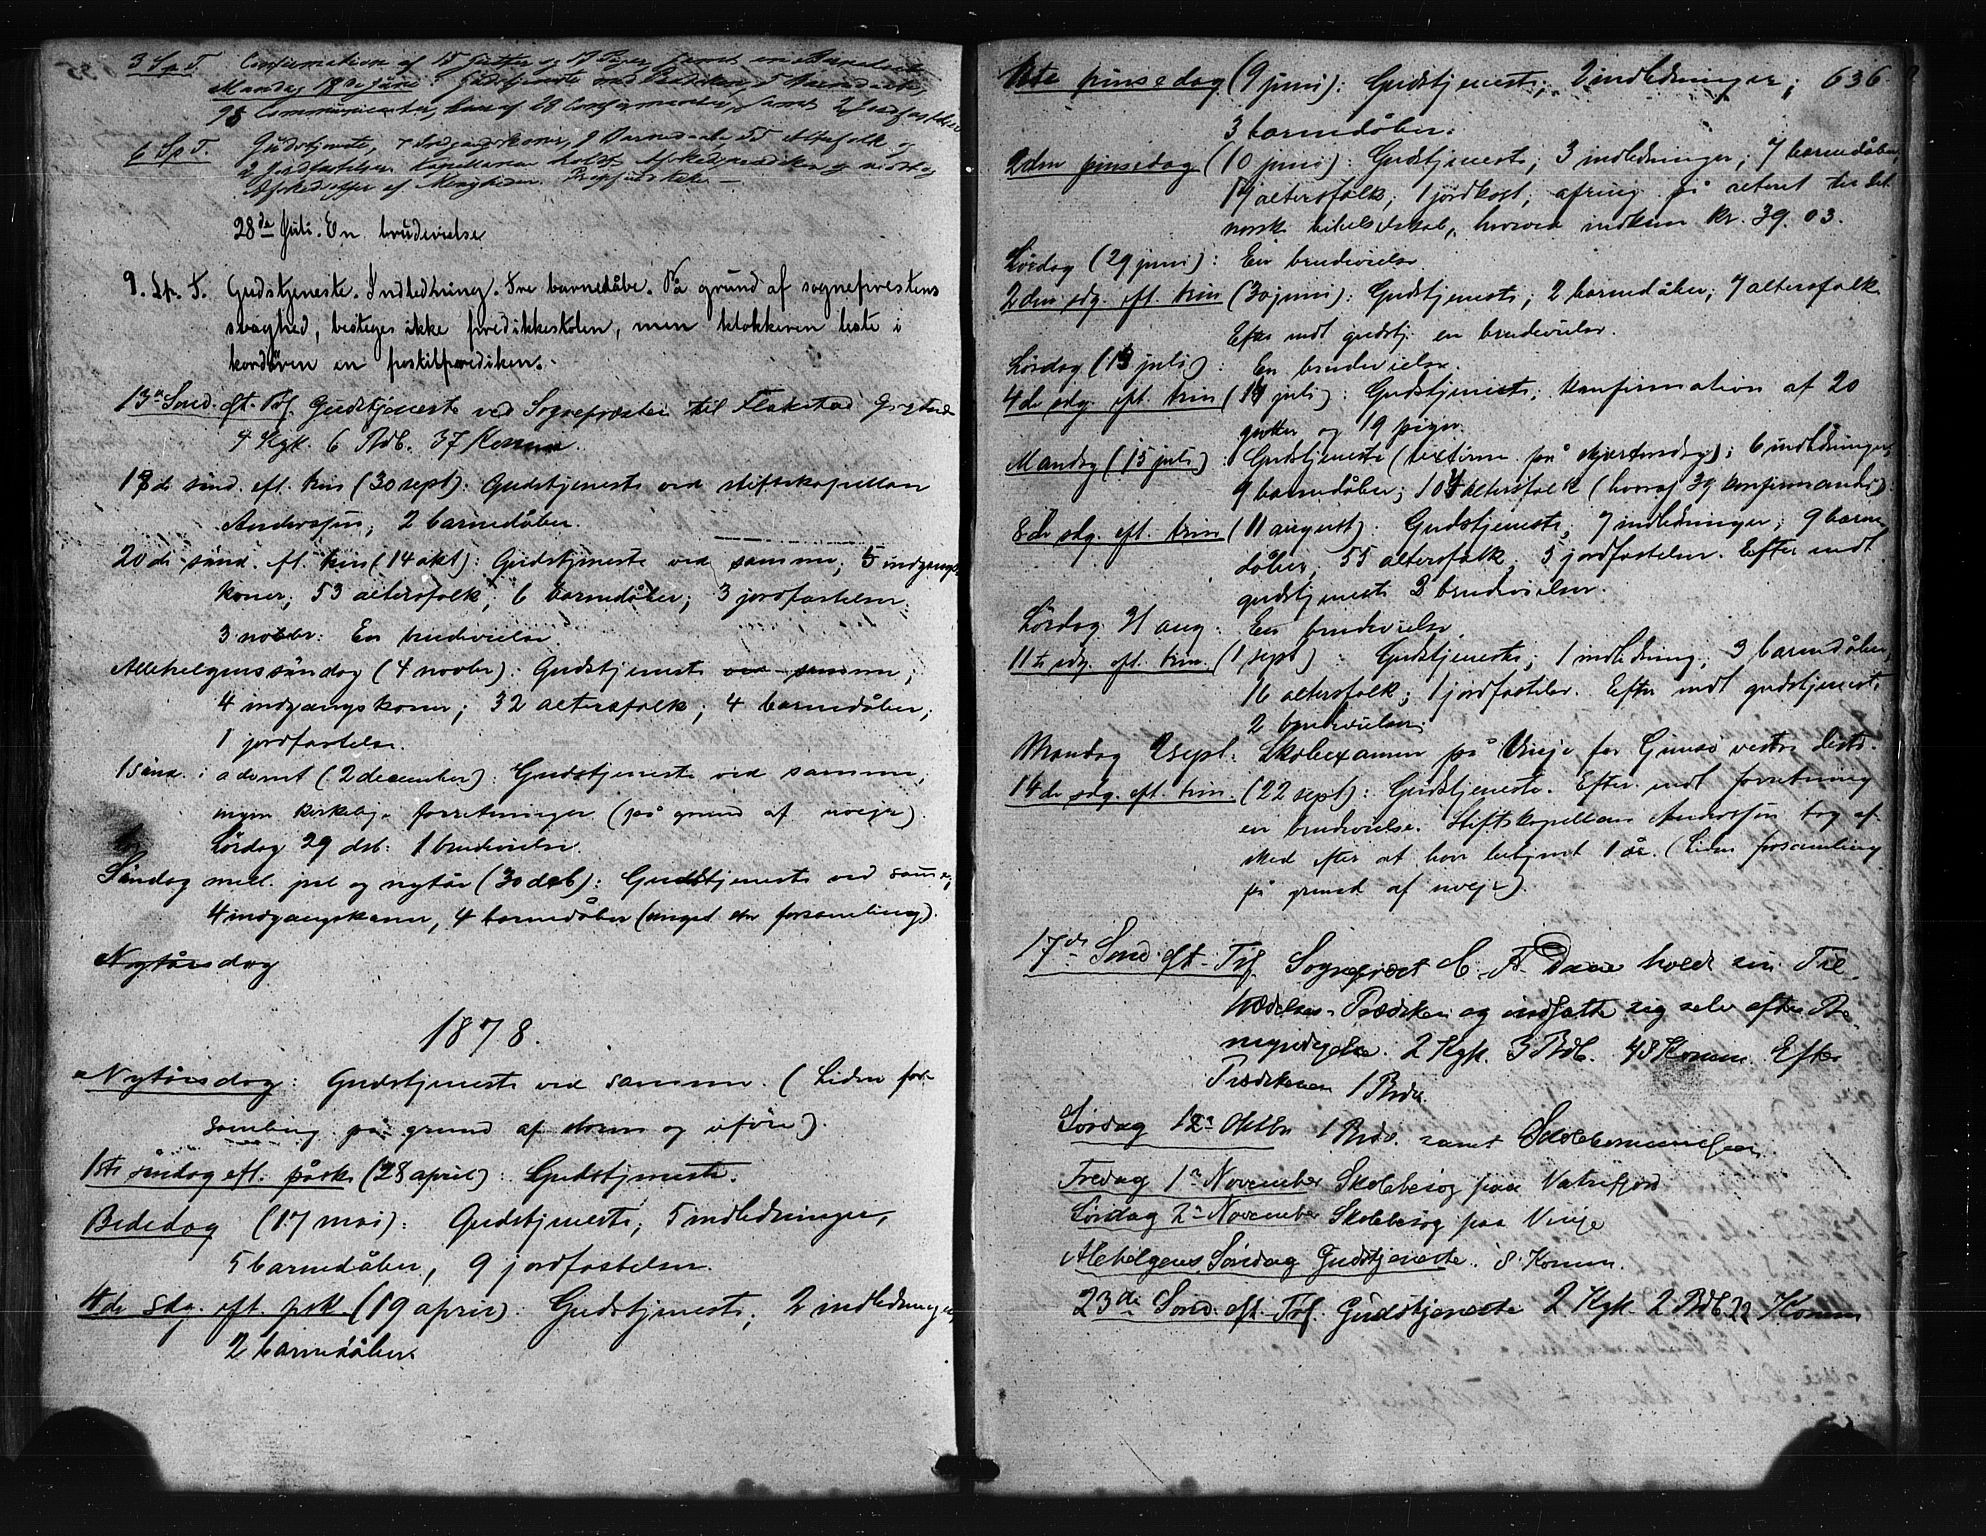 3 S p T. Confirmation af 15 Gutter og 17 Piger samt en Barnedaab
Mandag 18de Juni. Gudstjeneste med Prædiken, 5 Barnedaabe
98 Communicanter, hvoraf 28 Confirmanter, samt 2 Jordfæstelser
6 S p T. Gudstjeneste, Indgangskoner, 9 Barnedaab, 55 Altefolk og
2 Jordfæstelser. Kapellanen holdt Afskedsprædiken og modtog
Afskedsoffer af Menigheden.
28de Juli. En brudevielse
9. S. p. T. Gudstjeneste. Indledning. Tre barnedåbe. På grund af sogneprestens
svaghed, besteges ikke predikestolen, men klokkeren leste i
kordören en postilprediken.
13n Sönd. eft. Tref. Gudstjeneste ved Sognepræsten til Flakstad
4 Kgk. 6 Bdb. 37 Komm.
18de sönd. eft. trin (30 sept): Gudstjeneste ved stiftskapellan
Anderssen; 2 barnedåber.
20de sönd. eft. trin (14 okt): Gudstjeneste ved samme; 5 indgangs-
koner; 53 altersfolk; 6 barnedåber; 3 jordfæstelser.
3 novbr: En brudevielse
Allehelgenssöndag (4 novbr): Gudstjeneste ved samme;
4 indgangskoner; 32 altersfolk; 4 barnedåber;
1 jordfæstelse.
1 sönd. i advent (2 december): Gudstjeneste ved samme;
ingen kirkelige forretninger (på grund af uveir).
Lördag 29 dcb: 1 brudevielse.
Söndag mell. jul og nytår (30 dcb): Gudstjeneste ved samme;
4 indgangskoner, 4 barnedåber (meget stor forsamling).
Nytårsdag
1878.
Nytårsdag: Gudstjeneste ved samme. (Liden for-
samling på grund af storm og uföre).
1ste söndag eft. påske (28 april): Gudstjeneste.
Bededag (17 mai): Gudstjeneste; 5 indledninger,
5 barnedåber, 9 jordfæstelser.
4de sdg. eft. psk. (19 april): Gudstjeneste; 2 indledninger,
2 barnedåber.
1ste pinsedag (9 juni): Gudstjeneste; 2 indledninger; 636
3 barnedåber.
2den pinsedag (10 juni): Gudstjeneste; 3 indledninger; 7 barnedåber,
19 altersfolk; 1 jordkast; ofring på alteret til det
norske bibelselskab, hvorved indkom kr. 39.03.
Lördag (29 juni): En brudevielse
2den sdg. eft. trin (30 juni): Gudstjeneste; 2 barnedåber; 7 altersfolk
Efter endt gudstj. en brudevielse.
Lördag (13 juli): En brudevielse.
4de sdg. eft. trin (14 juli): Gudstjeneste; konfirmation af 20
gutter og 19 piger.
Mandag (15 juli): Gudstjeneste (texterne på skjærtorsdag); 6 indledninger
9 barnedåber; 104 altersfolk (hvoraf 39 konfirmander)
8de sdg. eft. trin (11 august): Gudstjeneste; 7 indledninger; 9 barne-
dåber; 55 altersfolk; 5 jordfæstelser. Efter endt
gudstjeneste 3 brudevielser.
Lördag 31 aug: En brudevielse.
11te sdg. eft. trin. (1 sept): Gudstjeneste; 1 indledning; 3 barnedåber,
16 altersfolk; 1 jordfæstelse. Efter endt gudstjeneste
2 brudevielser.
Mandag 2 sept: Skoleexamen på Vinje for Gimsö vestre distr.
14de sdg. eft. trin. (22 sept): Gudstjeneste. Efter endt forretning
en brudevielse. Stiftskapellan Anderssen tog af-
sked efter at have betjent 1 år. (Liden forsamling
på grund af uveir).
17de Sönd. eft. Tref. Sognepræst C. F. Daae holdt sin Til-
trædelses-Prædiken og indsatte sig selv efter Be-
myndigelse. 2 Kgk. 3 Bdb. 43 Komm. Efter
Prædikenen 1 Brdv.
Lördag 12n Oktbr 1 Brdv. samt Skolekommission
Fredag 1n November Skolebesög paa Vatnfjord
Lördag 2n November Skolebesög paa Vinje
Alehelgens Söndag Gudstjeneste. 8 Komm.
23de Sönd. eft. Tref. Gudstjeneste 2 Kgk 2 Bdb. 12 Komm